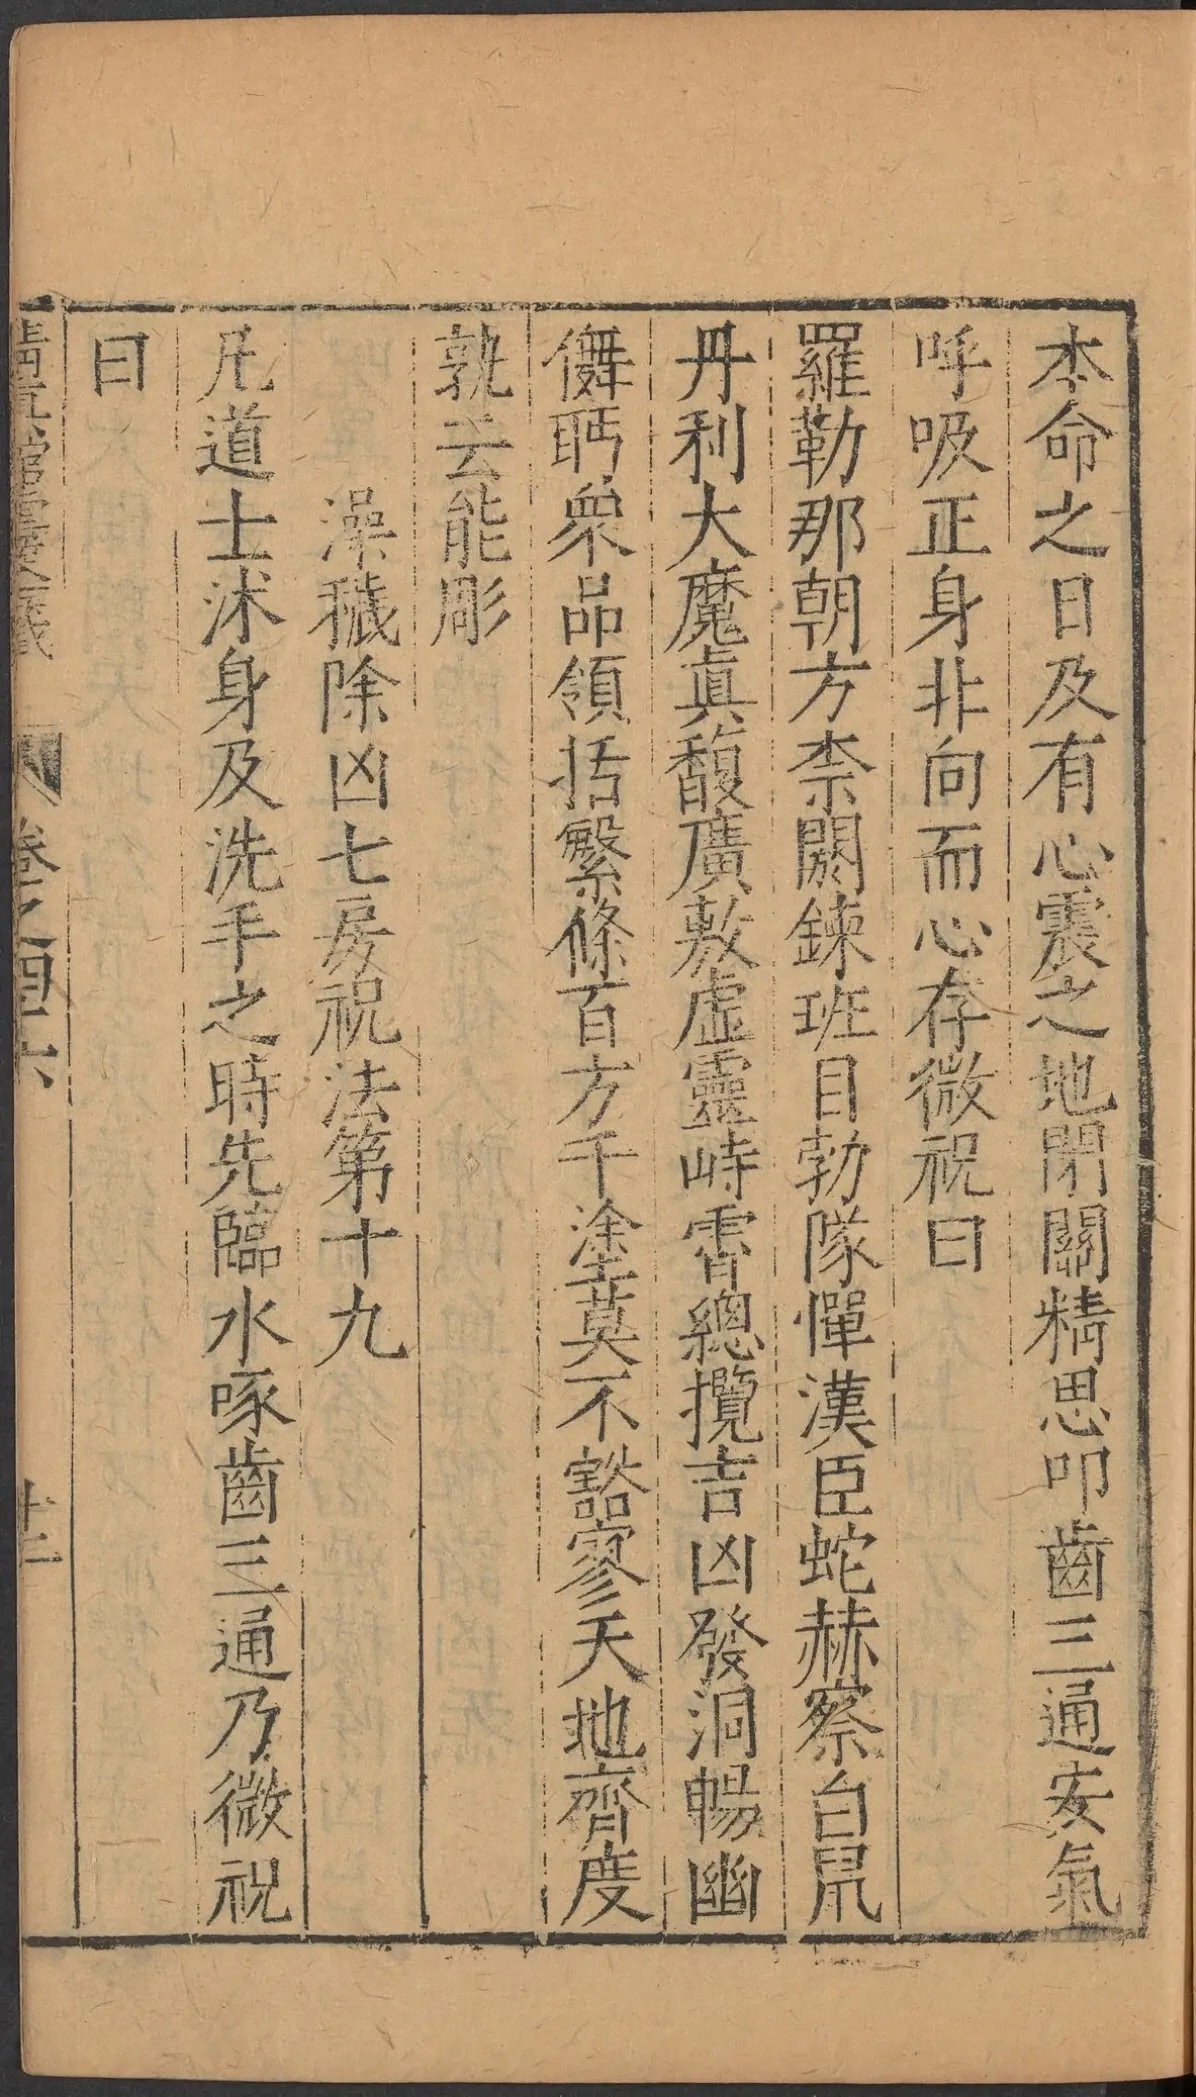 本命之日及有心震之地閉關精思叩齒三通安氣
呼吸正身北向而心存微祝曰
羅勒那朝方柰闕鍊班目勃隊憚漢臣蛇赫察白鼠
丹利大魔眞馥廣敷虛靈峙霄總攬吉凶發洞暢幽
儛眄衆品領括繁條百方千塗莫不豁寥天地齊度
孰云能彫
澡穢除凶七房祝法第十九
凡道士沐身及洗手之時先臨水啄齒三通乃微祝
曰
卷之四十六
十二